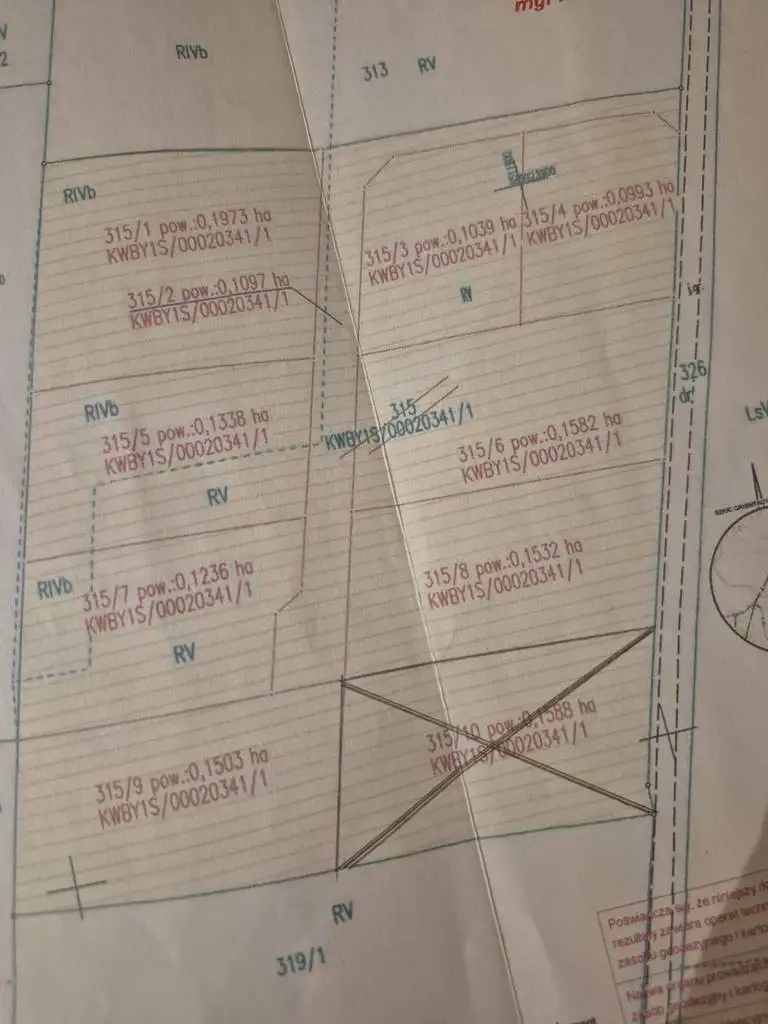 RIVb
313 RV
RIVb
315/1 pow.:0,1973 ha
KWBY1S/00020341/1
315/2 pow.:0,1097 ha
KWBY1S/00020341/1
315/3 pow.:0,1039 ha
KWBY1S/00020341/1
315/4 pow.:0,0993 ha
KWBY1S/00020341/1
RV
326
dr
RIVb
315/5 pow.:0,1338 ha
KWBY1S/00020341/1
315
KWBY1S/00020341/1
315/6 pow.:0,1582 ha
KWBY1S/00020341/1
RV
RIVb
315/7 pow.:0,1236 ha
KWBY1S/00020341/1
315/8 pow.:0,1532 ha
KWBY1S/00020341/1
RV
315/9 pow.:0,1503 ha
KWBY1S/00020341/1
315/10 pow.:0,1588 ha
KWBY1S/00020341/1
RV
319/1
Poświadcza się, że niniejszy
rezultaty zawiera operat
zasobu geodezyjnego i
Nazwa organu